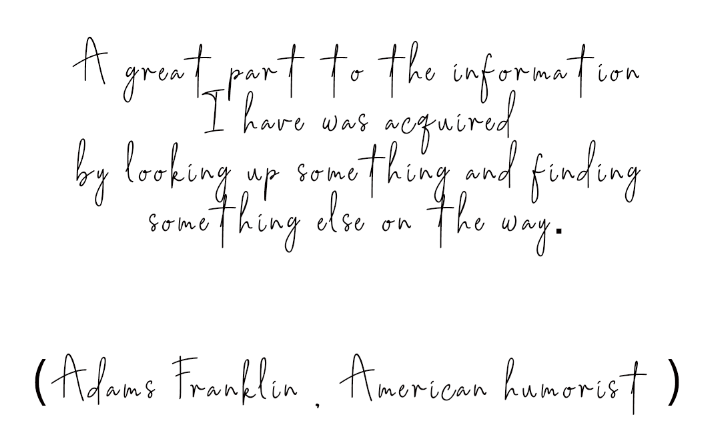 A great part to the information
I have was acquired
by looking up something and finding
something else on the way.
(Adams Franklin , American humorist )